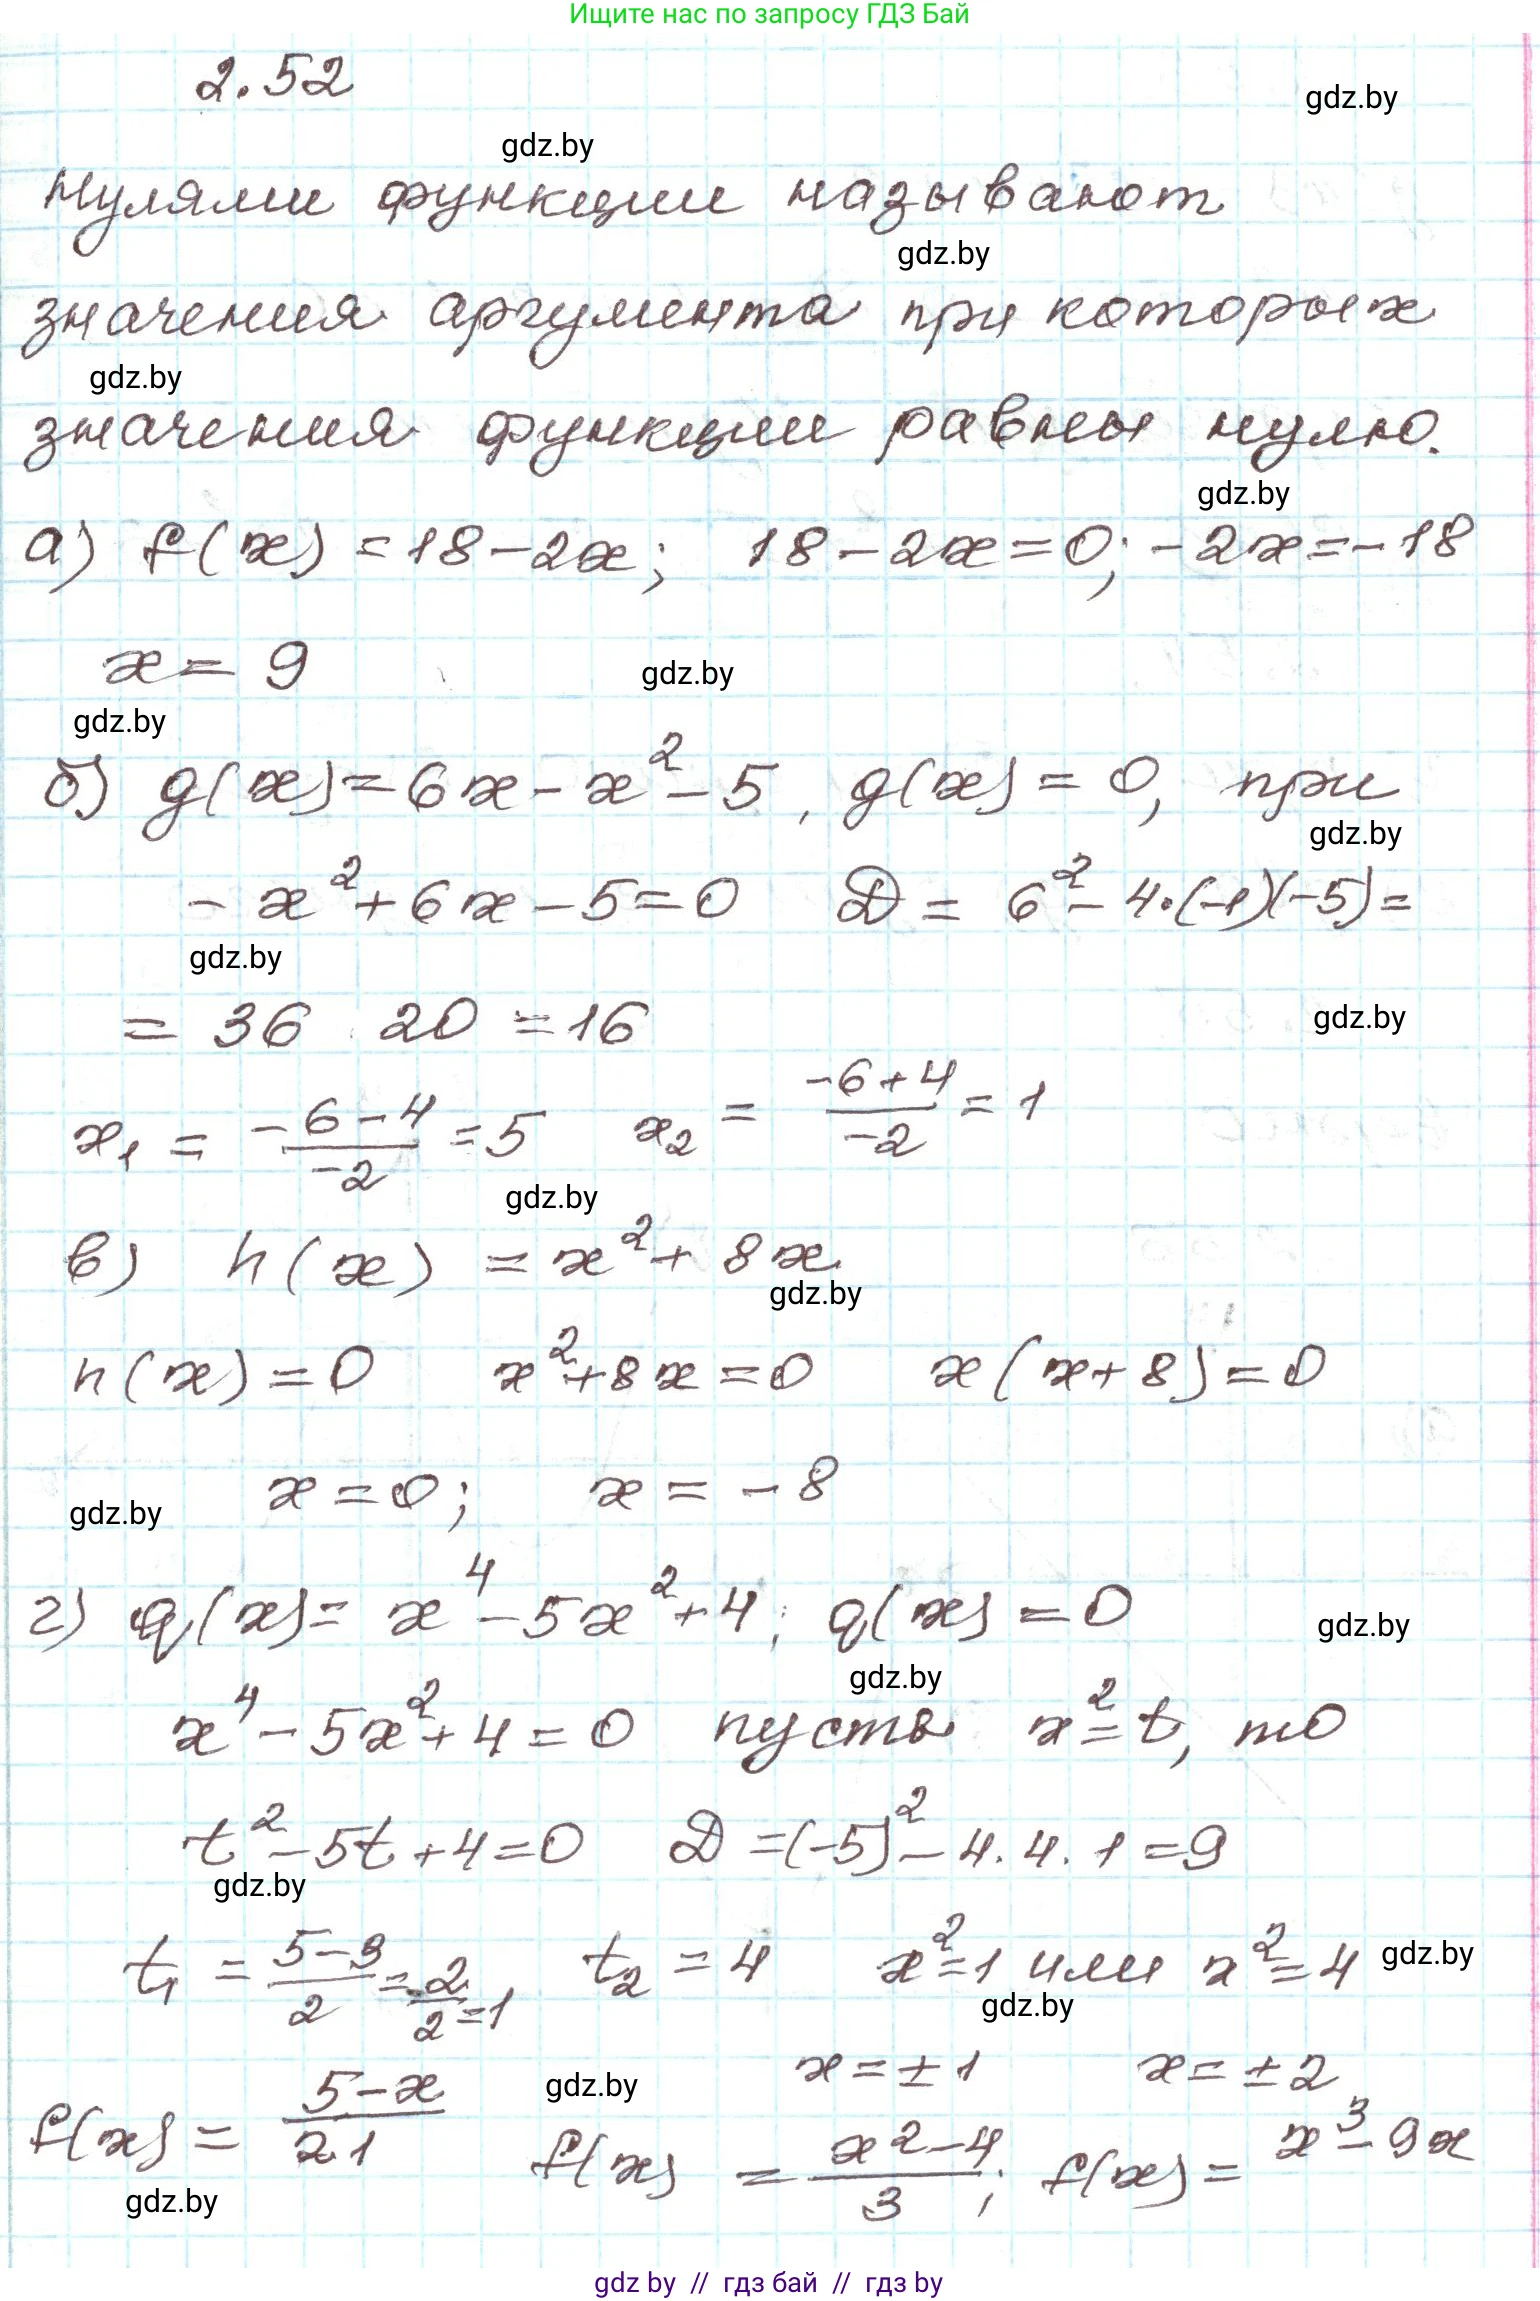 Ищите нас по запросу ГДЗ Бай
2.52
gdz.by
gdz.by
Нулями функции называют
gdz.by
значения аргумента при которых
gdz.by
значения функции равны нулю.
gdz.by
а) f(x) = 18 - 2x; 18 - 2x = 0; -2x = -18
x = 9
gdz.by
gdz.by
б) g(x) = 6x - x² - 5, g(x) = 0, при
gdz.by
-x² + 6x - 5 = 0 D = 6² - 4·(-1)(-5) =
gdz.by
= 36 20 = 16
gdz.by
x₁ = (-6-4)/(-2) = 5 x₂ = (-6+4)/(-2) = 1
gdz.by
в) h(x) = x² + 8x
gdz.by
h(x) = 0 x² + 8x = 0 x(x + 8) = 0
x = 0; x = -8
gdz.by
г) q(x) = x⁴ - 5x² + 4; q(x) = 0
gdz.by
gdz.by
x⁴ - 5x² + 4 = 0 пусть x² = t, то
t² - 5t + 4 = 0 D = (-5)² - 4·4·1 = 9
gdz.by
t₁ = (5-3)/2 = 2/2 = 1 t₂ = 4 x² = 1 или x² = 4
gdz.by
gdz.by
x = ±1 x = ±2
gdz.by
f(x) = (5-x)/2.1 f(x) = (x²-4)/3; f(x) = x³ - 9x
gdz.by
gdz by // гдз бай // гдз by